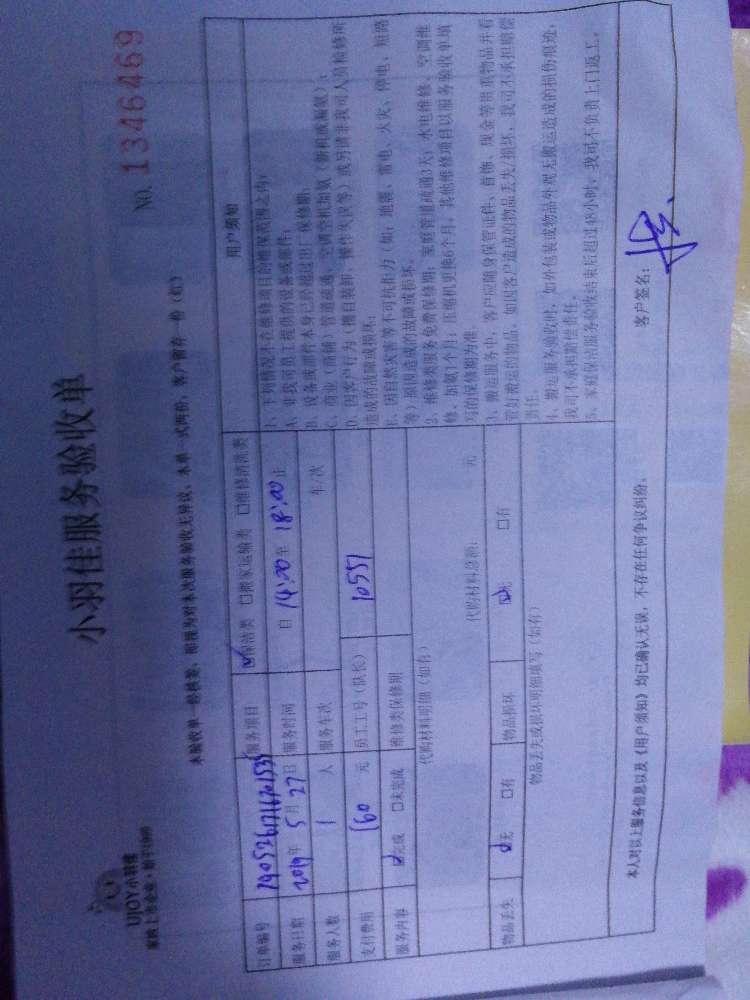 UJOY小羽佳
小羽佳服务验收单
NO. 1346469
本验收单一经核签，即视为对本次服务验收无异议，本单一式两份，客户留存一份（红）
订单编号 服务项目 ☑保洁类 □搬家运输类 □维修清洗类
服务日期 2019年5月27日 服务时间 自 14:00 至 18:00 止
服务人数 1 人 服务车次 车/次
支付费用 160 元 员工工号（队长） 10551
服务内容 ☑完成 □未完成 维修类保修期
代购材料明细（如有）
代购材料总额： 元
物品丢失 ☑无 □有 物品损坏 ☑无 □有
物品丢失或损坏明细填写（如有）
用户须知
1、下列情况不在维修项目的维保范围之内：
A、非我司员工提供的设备或部件；
B、设备或部件本身已经超过出厂保修期；
C、商业（商铺）管道疏通、空调空机加氨（新机或漏氨）；
D、因客户行为（擅自装卸、操作失误等）或另请非我司人员检修所
造成的故障或损坏。
E、因自然灾害等不可抗拒力（如：地震、雷电、火灾、停电、短路
等）原因造成的故障或损坏。
2、维修类服务免费保修期：家庭管道疏通3天；水电维修、空调维
修、加氨1个月；压缩机更换6个月。其他维修项目以服务验收单填
写的保修期为准。
3、搬运服务中，客户应随身保管证件、首饰、现金等贵重物品并看
管好搬运的物品。如因客户造成的物品丢失/损坏，我司不承担赔偿
责任。
4、搬运服务验收时，如外包装或物品外观无搬运造成的损伤痕迹，
我司不承担赔偿责任。
5、家庭保洁服务验收结束后超过48小时，我司不负责上门返工。
本人对以上服务信息以及《用户须知》均已确认无误，不存在任何争议纠纷。
客户签名：